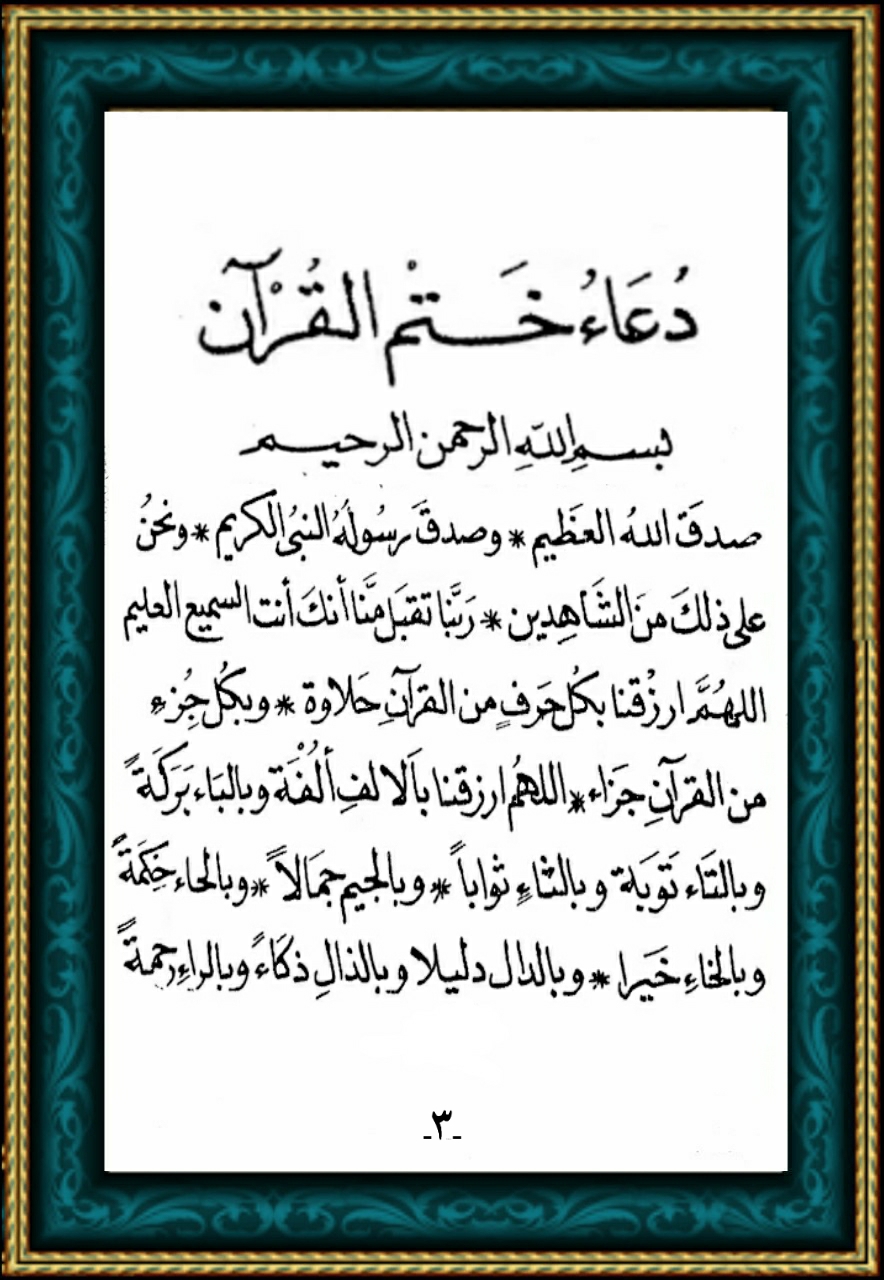 دُعَاءُ خَتْم القُرْآن
بسمِ اللّهِ الرحمن الرحيم
صدقَ اللهُ العظَيم * وصدقَ رسُولُهُ النبىُ الكريم * ونحنُ
على ذلكَ منَ الشَاهِدين * رَبَّنا تقبَل مَّنا أنكَ أنت السميع العليم
اللهُمَّ ارزُقنا بكُل حَرفٍ من القرآنِ حَلاوة * وبكُل جُزءٍ
من القرآنِ جَزاء * اللهُم ارزقنا باَلالفِ ألُفْنَة وبالبَاء بَرَكَةً
وبالتَاء تَوبَة وبالثاءٍ ثواباً * وبالجيم جمَالاً * وبالحاء حِكمَةً
وبالخاءِ خَيرا * وبالدال دليلا وبالذالِ ذكَاءً وبالراءِ رحمةً
-٣-